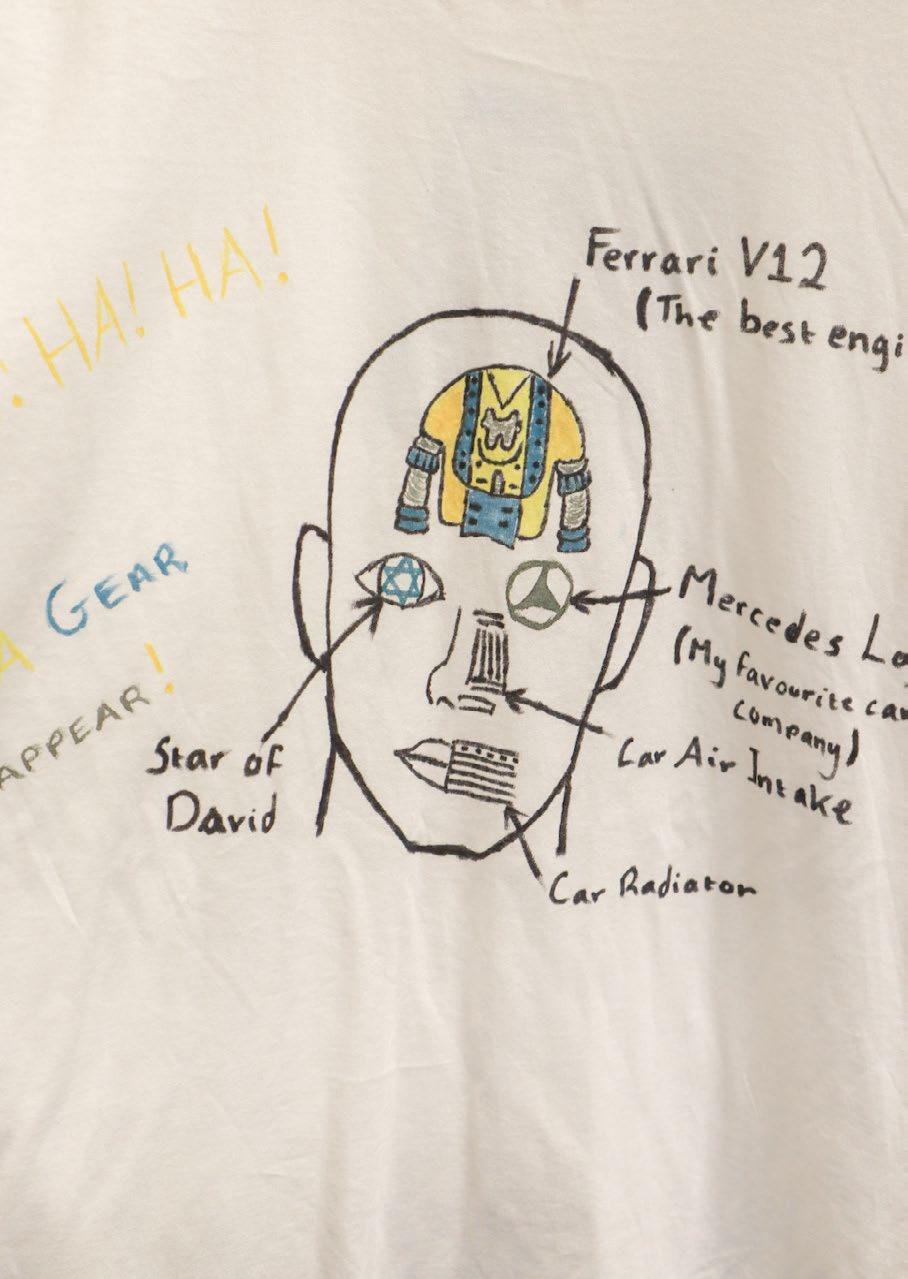 HA! HA!
Ferrari V12
(The best engi
GEAR
APPEAR!
Mercedes Lo
(My favourite car
company)
Star of
David
Car Air Intake
Car Radiator